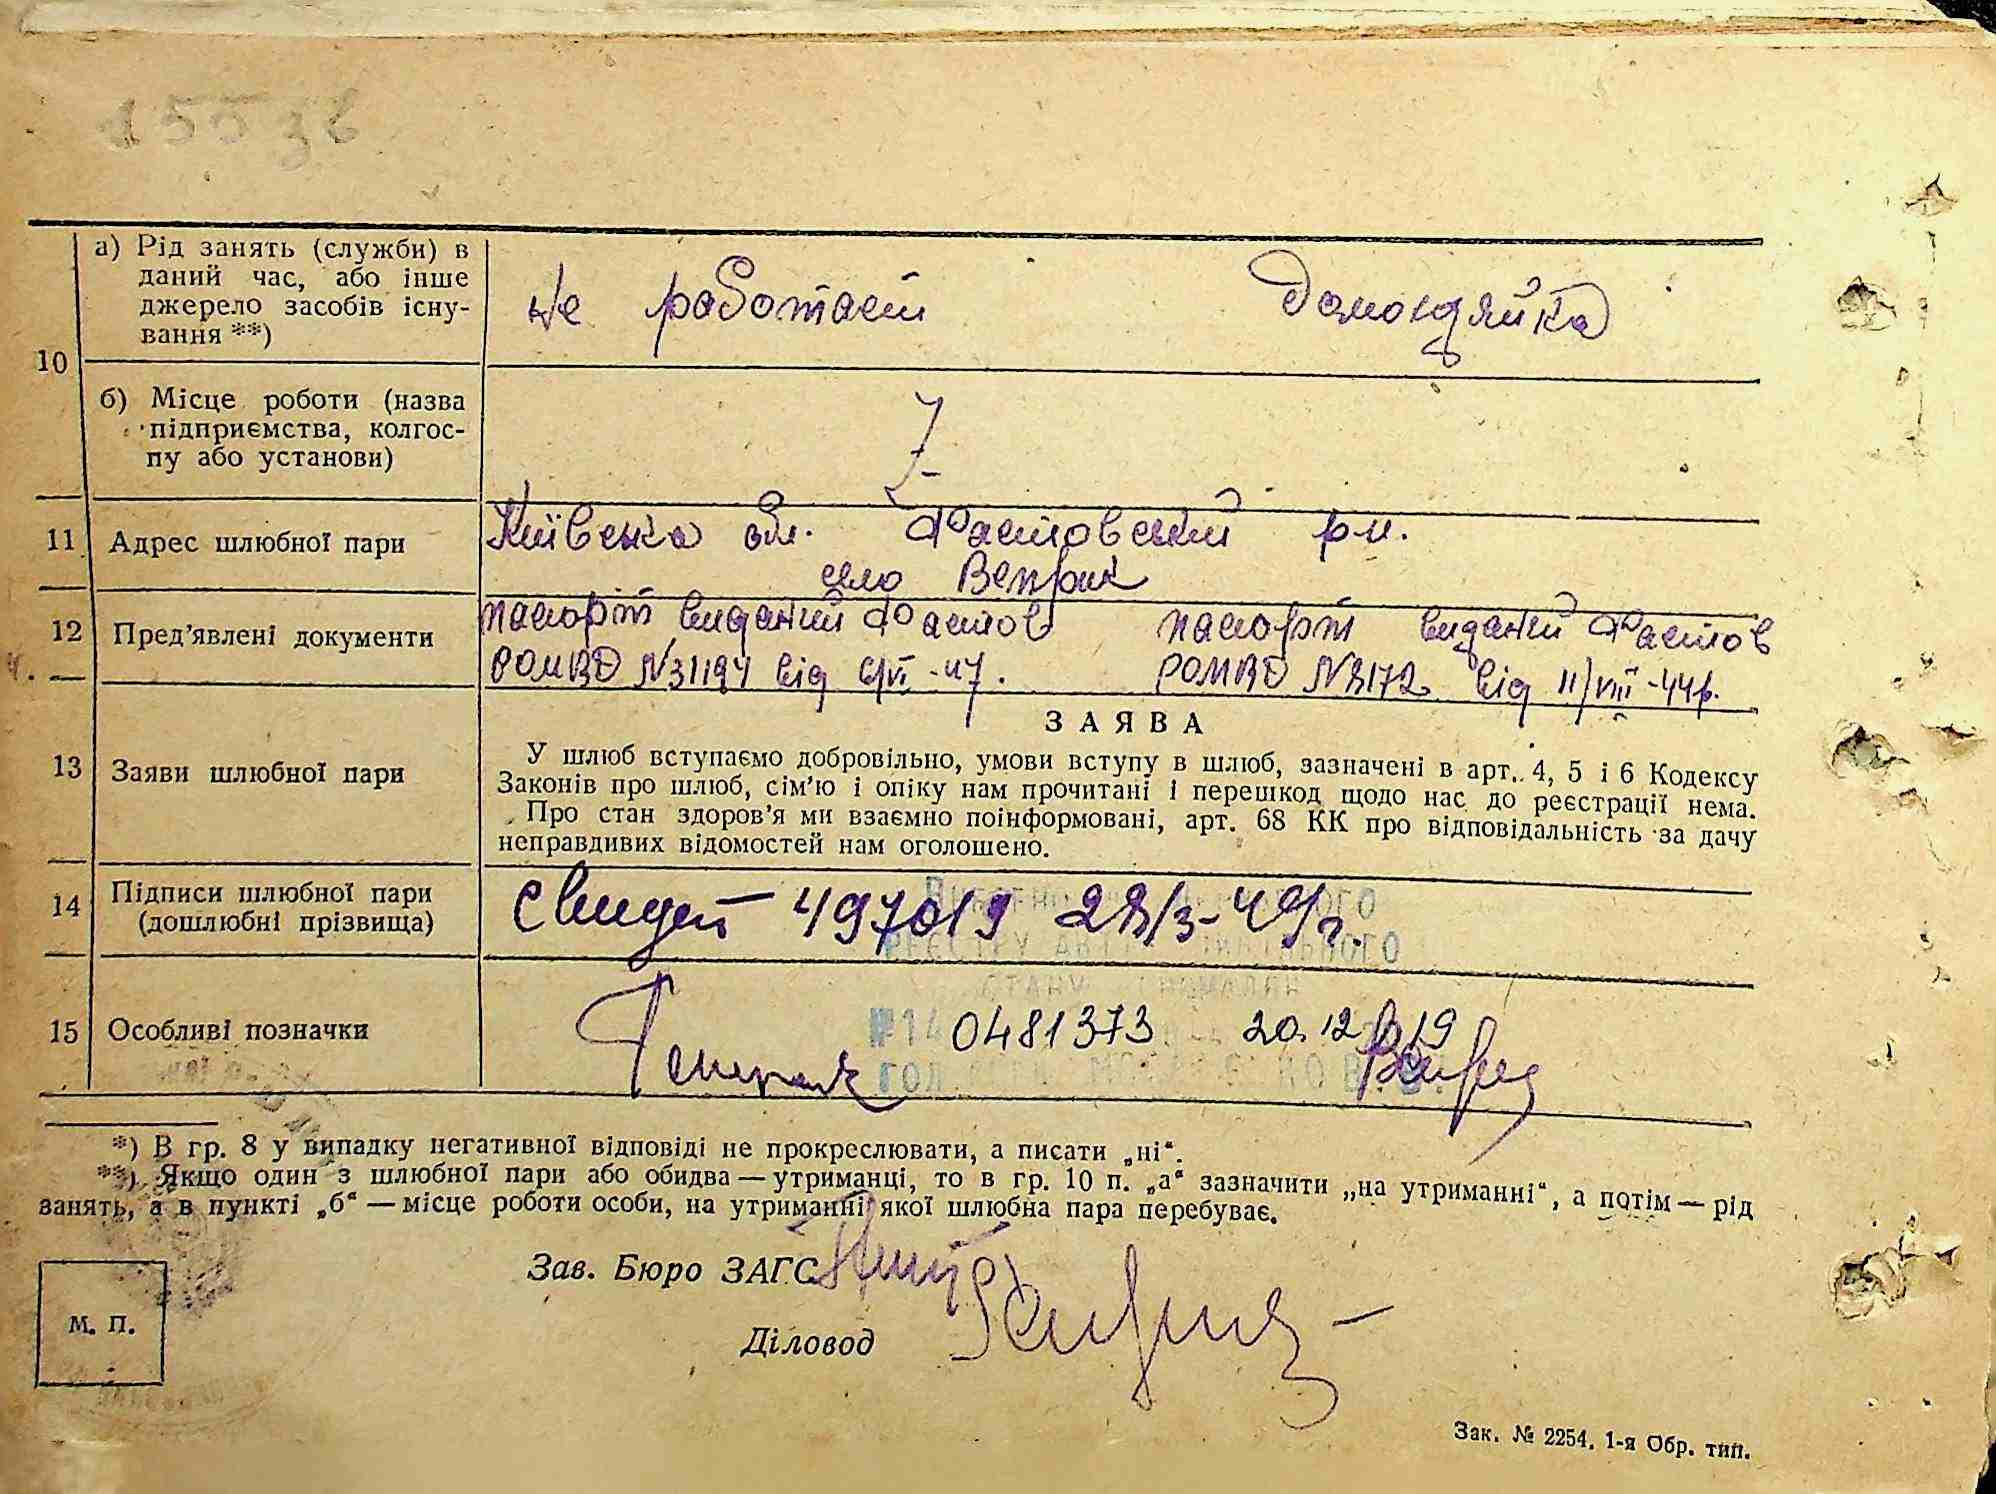 а) Рід занять (служби) в
даний час, або інше
джерело засобів існу-
вання **)
не работает домохдяйка
10
б) Місце роботи (назва
підприємства, колгос-
пу або установи)
11 Адрес шлюбної пари
Київська обл. Фастовский р-н.
село Веприк
12 Пред'явлені документи
паспорт виданий Фастов
РОМВД №31194 від 6/VI -47.
паспорт виданий Фастов
РОМВД №8172 від 11/VIII-44р.
13 Заяви шлюбної пари
ЗАЯВА
У шлюб вступаємо добровільно, умови вступу в шлюб, зазначені в арт. 4, 5 і 6 Кодексу
Законів про шлюб, сім'ю і опіку нам прочитані і перешкод щодо нас до реєстрації нема.
Про стан здоров'я ми взаємно поінформовані, арт. 68 КК про відповідальність за дачу
неправдивих відомостей нам оголошено.
14 Підписи шлюбної пари
(дошлюбні прізвища)
Свидет 497019 28/3-49г.
15 Особливі позначки
0481373 20.12.2019
*) В гр. 8 у випадку негативної відповіді не прокреслювати, а писати „ні“.
**) Якщо один з шлюбної пари або обидва — утриманці, то в гр. 10 п. „а“ зазначити „на утриманні“, а потім — рід
занять, а в пункті „б“ — місце роботи особи, на утриманні якої шлюбна пара перебуває.
Зав. Бюро ЗАГС
М. П.
Діловод
Зак. № 2254. 1-я Обр. тип.